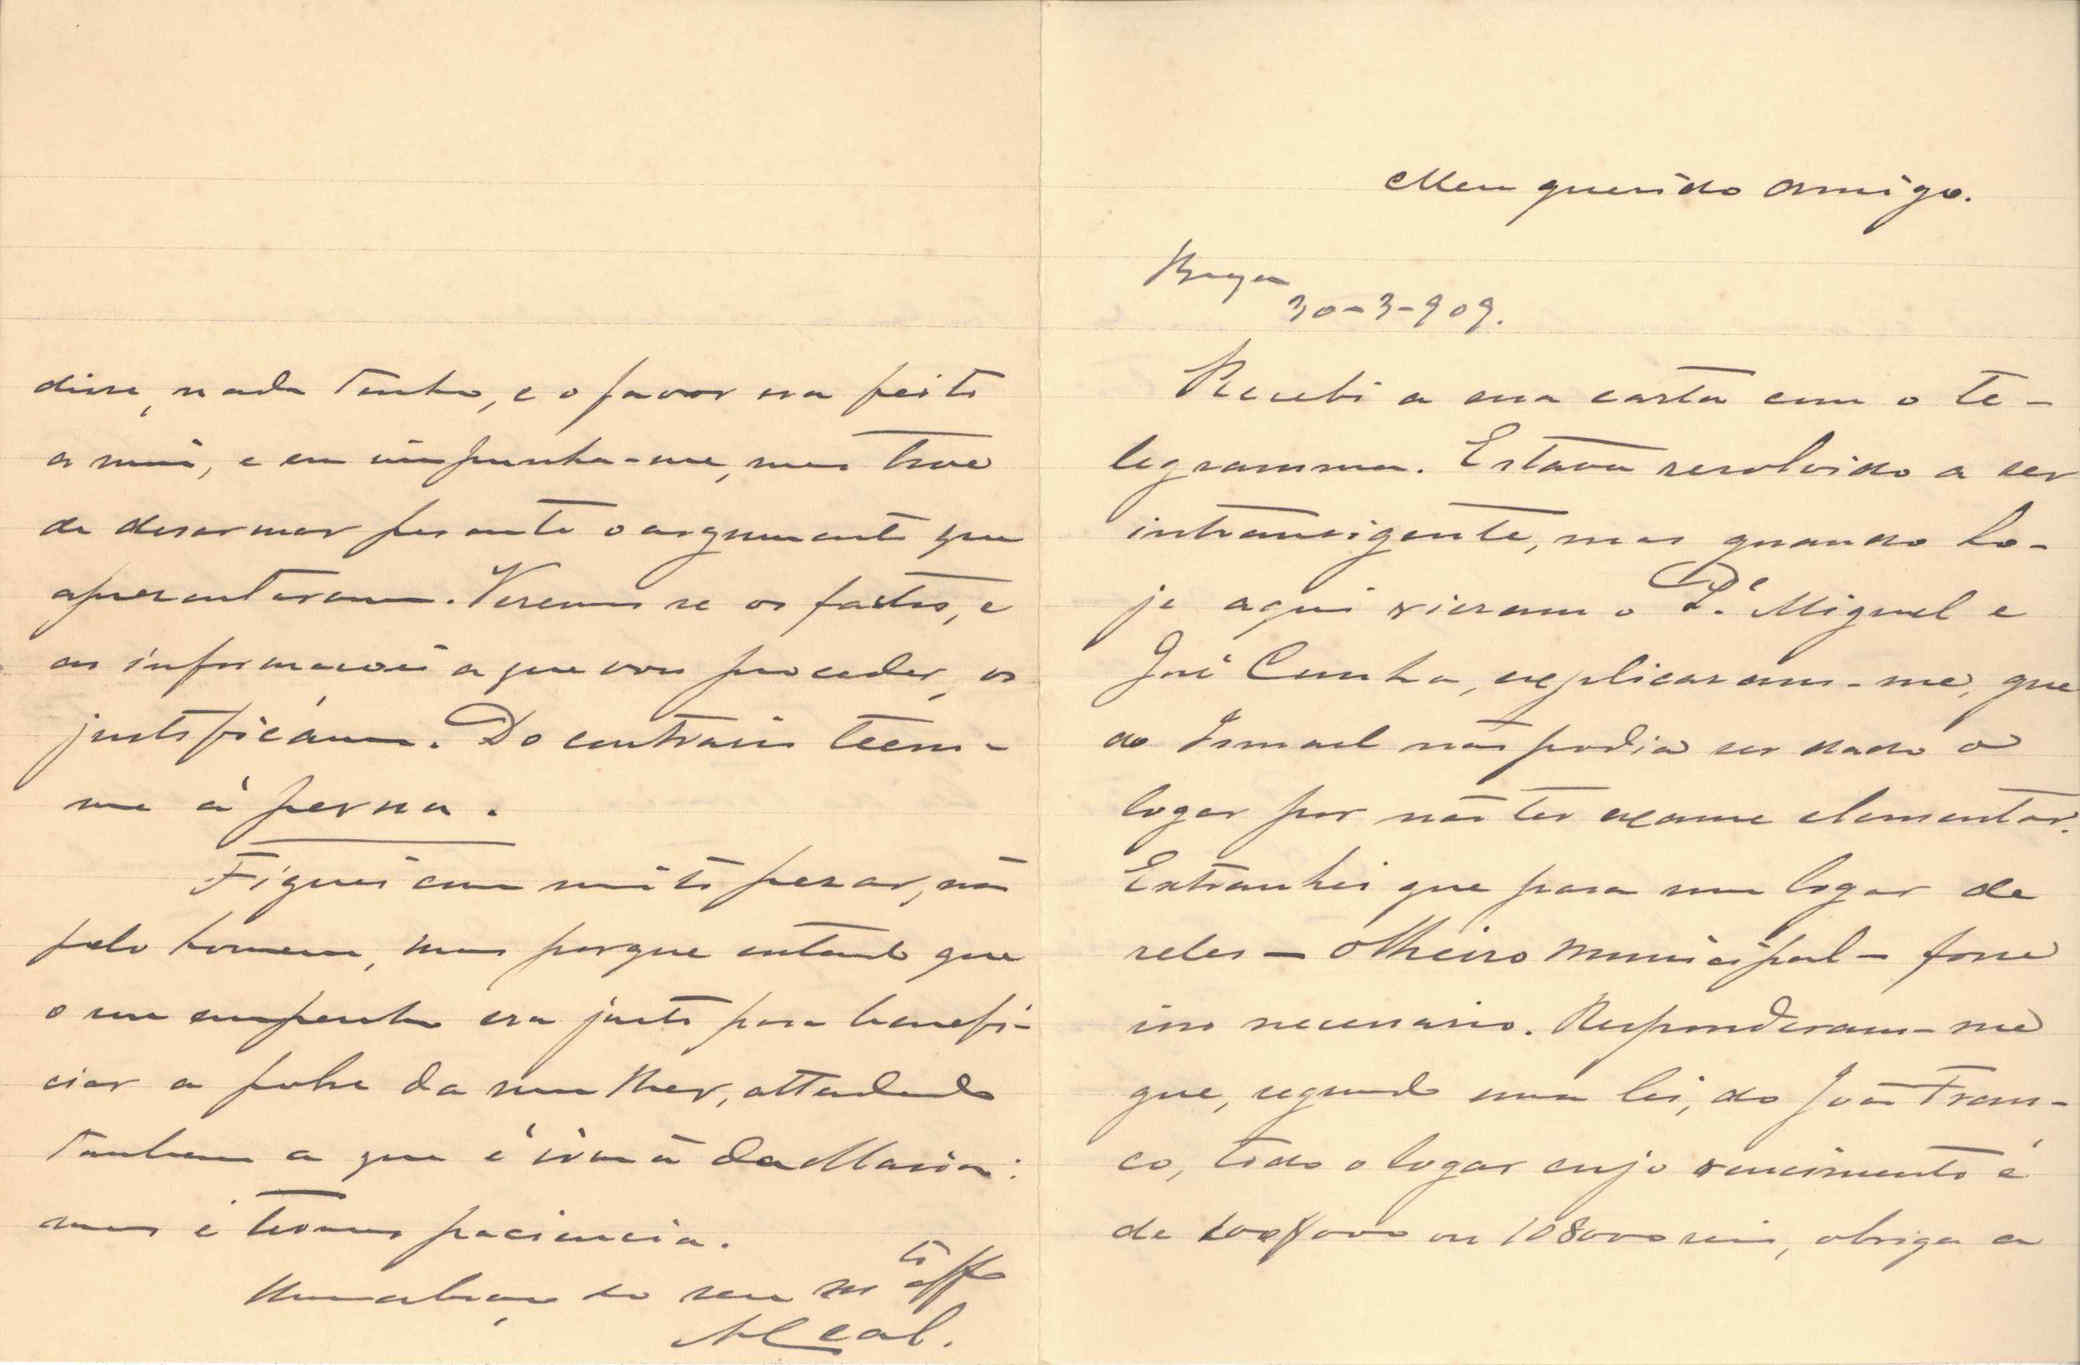 Meu querido amigo.
Braga
30-3-909.
Recebi a sua carta com o te-
legramma. Estava resolvido a ser
intransigente, mas quando ho-
je aqui vieram o P.e Miguel e
José Cunha, explicaram-me, que
ao Ismael não podia ser dado o
logar por não ter exame elementar.
Extranhei que para um logar de
reles - olheiro municipal - fosse
isso necessario. Responderam-me
que, segundo uma lei, do João Fran-
co, todo o logar cujo vencimento é
de 100$000 ou 108000 reis, obriga a
disse, nada tenho, e o favor era feito
a mim, e eu impunha-me, mas tive
de desarmar perante o argumento que
apresentaram. Veremos se os factos, e
as informacões a que vou proceder, os
justificam. Do contrario teem-
me á perna.
Fiquei com muito pezar, não
pelo homem, mas porque entendo que
o meu empenho era justo para benefi-
ciar a pobre da mulher, attendendo
tambem a que é irmã da Maria:
mas é termos paciencia.
Um abraço do seu mto affo
Leal.